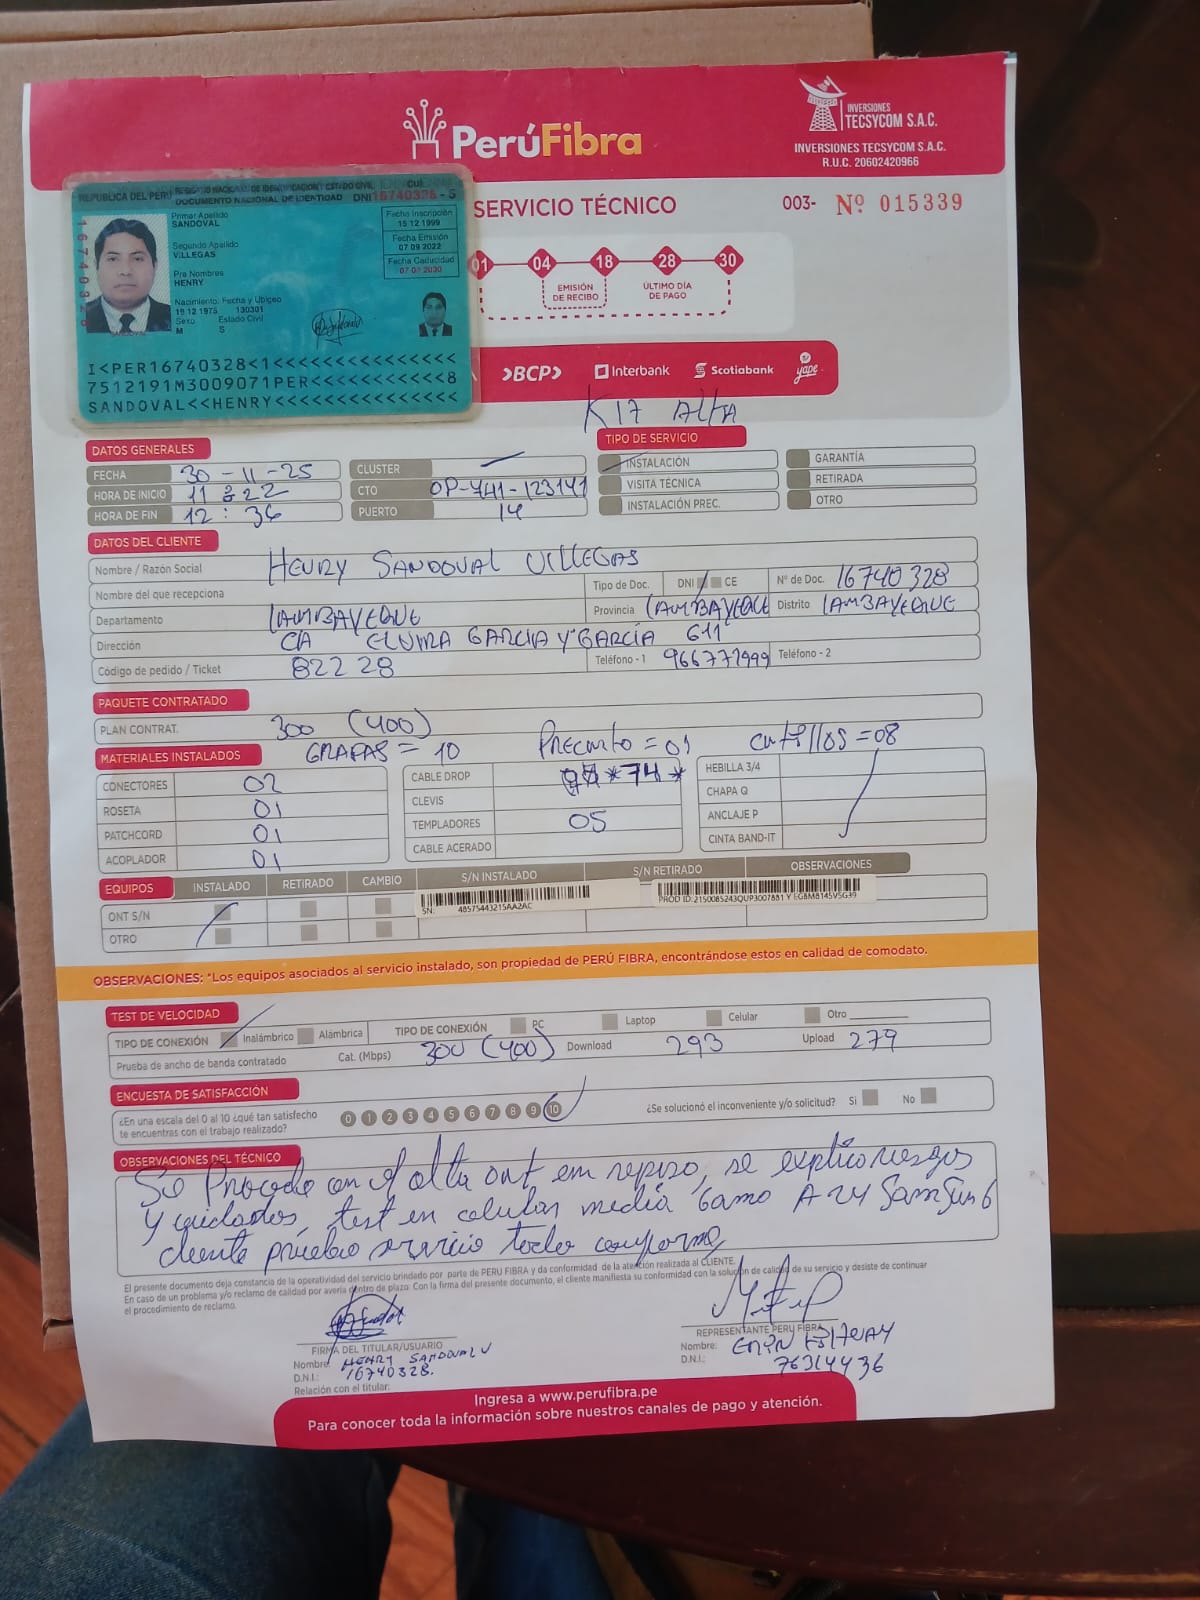 PerúFibra
INVERSIONES
TECSYCOM S.A.C.
INVERSIONES TECSYCOM S.A.C.
R.U.C. 20602420966
SERVICIO TÉCNICO
003- Nº 015339
REPUBLICA DEL PERU REGISTRO NACIONAL DE IDENTIFICACION Y ESTADO CIVIL CUI
DOCUMENTO NACIONAL DE IDENTIDAD DNI 16740328 - 5
Primer Apellido
SANDOVAL
Segundo Apellido
VILLEGAS
Pre Nombres
HENRY
Nacimiento: Fecha y Ubigeo
19 12 1975 130301
Sexo Estado Civil
M S
Fecha Inscripción
15 12 1999
Fecha Emisión
07 09 2022
Fecha Caducidad
07 09 2030
16740328
SANDOVAL
I<PER16740328<1<<<<<<<<<<<<<<<
7512191M3009071PER<<<<<<<<<<<8
SANDOVAL<<HENRY<<<<<<<<<<<<<<<
01 04 18 28 30
EMISIÓN DE RECIBO
ÚLTIMO DÍA DE PAGO
>BCP> Interbank Scotiabank yape
K17 Alta
DATOS GENERALES
FECHA 30-11-25
HORA DE INICIO 11:22
HORA DE FIN 12:36
CLUSTER
CTO OP-441-123141
PUERTO 14
TIPO DE SERVICIO
INSTALACIÓN
VISITA TÉCNICA
INSTALACIÓN PREC.
GARANTÍA
RETIRADA
OTRO
DATOS DEL CLIENTE
Nombre / Razón Social HENRY SANDOVAL VILLEGAS
Nombre del que recepciona Tipo de Doc. DNI CE Nº de Doc. 16740328
Departamento LAMBAYEQUE Provincia LAMBAYEQUE Distrito LAMBAYEQUE
Dirección CA ELVIRA GARCIA Y GARCÍA 611
Código de pedido / Ticket 82228 Teléfono - 1 966777999 Teléfono - 2
PAQUETE CONTRATADO
PLAN CONTRAT. 300 (400)
MATERIALES INSTALADOS GRAPAS = 10 Precinto = 01 = 08
CONECTORES 02
ROSETA 01
PATCHCORD 01
ACOPLADOR 01
CABLE DROP *74*
CLEVIS
TEMPLADORES 05
CABLE ACERADO
HEBILLA 3/4
CHAPA Q
ANCLAJE P
CINTA BAND-IT
EQUIPOS INSTALADO RETIRADO CAMBIO S/N INSTALADO S/N RETIRADO OBSERVACIONES
ONT S/N
OTRO
SN: 48575443215AA2AC
PROD ID: 2150085243QUP3007881 Y EG8M8145V5G39
OBSERVACIONES: "Los equipos asociados al servicio instalado, son propiedad de PERÚ FIBRA, encontrándose estos en calidad de comodato.
TEST DE VELOCIDAD
TIPO DE CONEXIÓN Inalámbrico Alámbrica TIPO DE CONEXIÓN PC Laptop Celular Otro
Prueba de ancho de banda contratado Cat. (Mbps) 300 (400) Download 293 Upload 279
ENCUESTA DE SATISFACCIÓN
¿En una escala del 0 al 10 ¿qué tan satisfecho
te encuentras con el trabajo realizado?
0 1 2 3 4 5 6 7 8 9 10
¿Se solucionó el inconveniente y/o solicitud? Si No
OBSERVACIONES DEL TÉCNICO
Se Procede con el alta ont em repiso, se explico riesgos
y cuidados, test en celular media Gama A24 Samsung
cliente pruebo servicio todo conforme
El presente documento deja constancia de la operatividad del servicio brindado por parte de PERU FIBRA y da conformidad de la atención realizada al CLIENTE.
En caso de un problema y/o reclamo de calidad por avería dentro de plazo. Con la firma del presente documento, el cliente manifiesta su conformidad con la solución de calidad de su servicio y desiste de continuar
el procedimiento de reclamo.
FIRMA DEL TITULAR/USUARIO
Nombre: HENRY SANDOVAL V
D.N.I.: 16740328.
Relación con el titular:
REPRESENTANTE PERU FIBRA
Nombre:
D.N.I.: 76314436
Ingresa a www.perufibra.pe
Para conocer toda la información sobre nuestros canales de pago y atención.